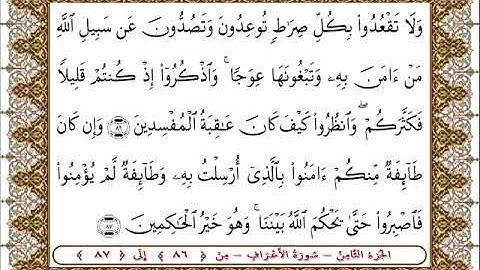 وَلَا تَقْعُدُوا۟ بِكُلِّ صِرَٰطٍ تُوعِدُونَ وَتَصُدُّونَ عَن سَبِيلِ ٱللَّهِ
مَنْ ءَامَنَ بِهِۦ وَتَبْغُونَهَا عِوَجًا ۚ وَٱذْكُرُوٓا۟ إِذْ كُنتُمْ قَلِيلًا
فَكَثَّرَكُمْ ۖ وَٱنظُرُوا۟ كَيْفَ كَانَ عَٰقِبَةُ ٱلْمُفْسِدِينَ ٨٦ وَإِن كَانَ
طَآئِفَةٌ مِّنكُمْ ءَامَنُوا۟ بِٱلَّذِىٓ أُرْسِلْتُ بِهِۦ وَطَآئِفَةٌ لَّمْ يُؤْمِنُوا۟
فَٱصْبِرُوا۟ حَتَّىٰ يَحْكُمَ ٱللَّهُ بَيْنَنَا ۚ وَهُوَ خَيْرُ ٱلْحَٰكِمِينَ ٨٧
الجزء الثَّامِن - سُورَةُ الأَعْرَافِ - مِن ﴿ ٨٦ ﴾ إِلَى ﴿ ٨٧ ﴾